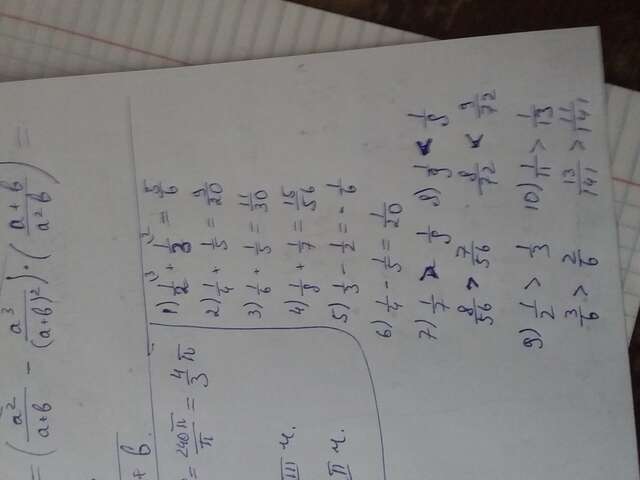 = (a²/(a+в) - a³/(a+в)²) · ((a+в)/(a²в)) =
+ в.
= 240π/π = 4/3 π
III ч.
II ч.
1) 1/2 ³ + 1/3 ² = 5/6
2) 1/4 + 1/5 = 9/20
3) 1/6 + 1/5 = 11/30
4) 1/8 + 1/7 = 15/56
5) 1/3 - 1/2 = - 1/6
6) 1/4 - 1/5 = 1/20
7) 1/7 > 1/8 8) 1/9 < 1/8
8/56 > 7/56 8/72 < 9/72
9) 1/2 > 1/3 10) 1/11 > 1/13
3/6 > 2/6 13/141 > 11/141